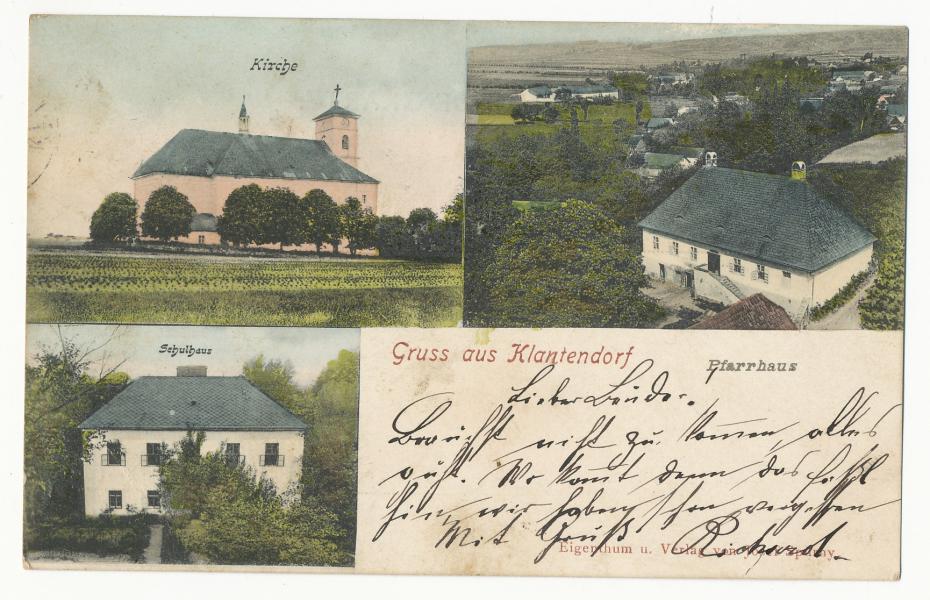 Kirche
Schulhaus
Gruss aus Klantendorf
Pfarrhaus
Lieber Bruder.
Brauchst nicht zu kommen, alles
gut. Wo kommt denn das
hin, wir haben schon vergessen
Mit Gruß Richard.
Eigenthum u. Verlag von